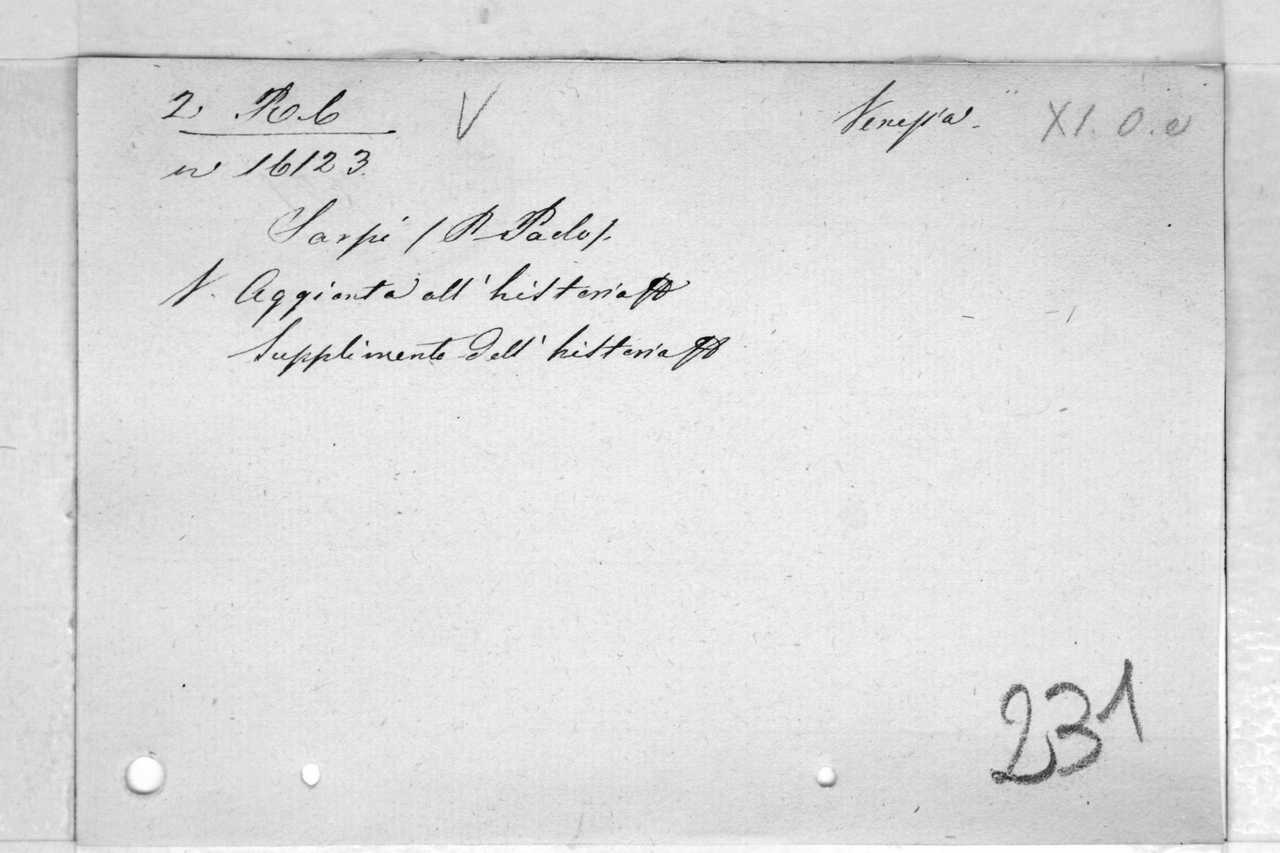 2 R. 6 V Venezia. XI. O. a
n 16123.
Sarpi (P Paolo).
V. Aggionta all'historia
Supplimento dell'historia
231